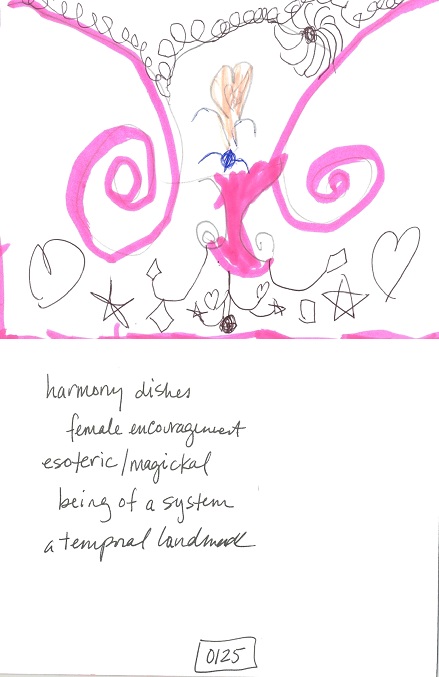 harmony dishes
female encouragement
esoteric/magickal
being of a system
a temporal landmark
0125